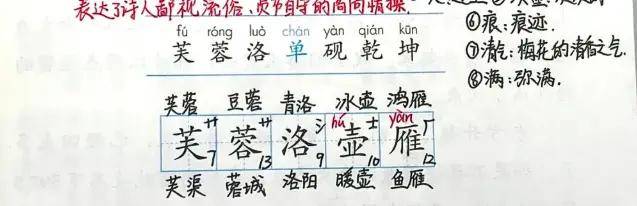 表达了诗人鄙视流俗、贞节自守的高尚情操.
⑥痕:痕迹.
⑦清气:梅花的清香之气.
⑧满:弥满.
fú róng luò chán yàn qián kūn
芙 蓉 洛 单 砚 乾 坤
芙蓉 豆蓉 青洛 冰壶 鸿雁
hú yàn
芙 艹 7 蓉 艹 13 洛 氵 9 壶 士 10 雁 厂 12
芙渠 蓉城 洛阳 暖壶 鱼雁